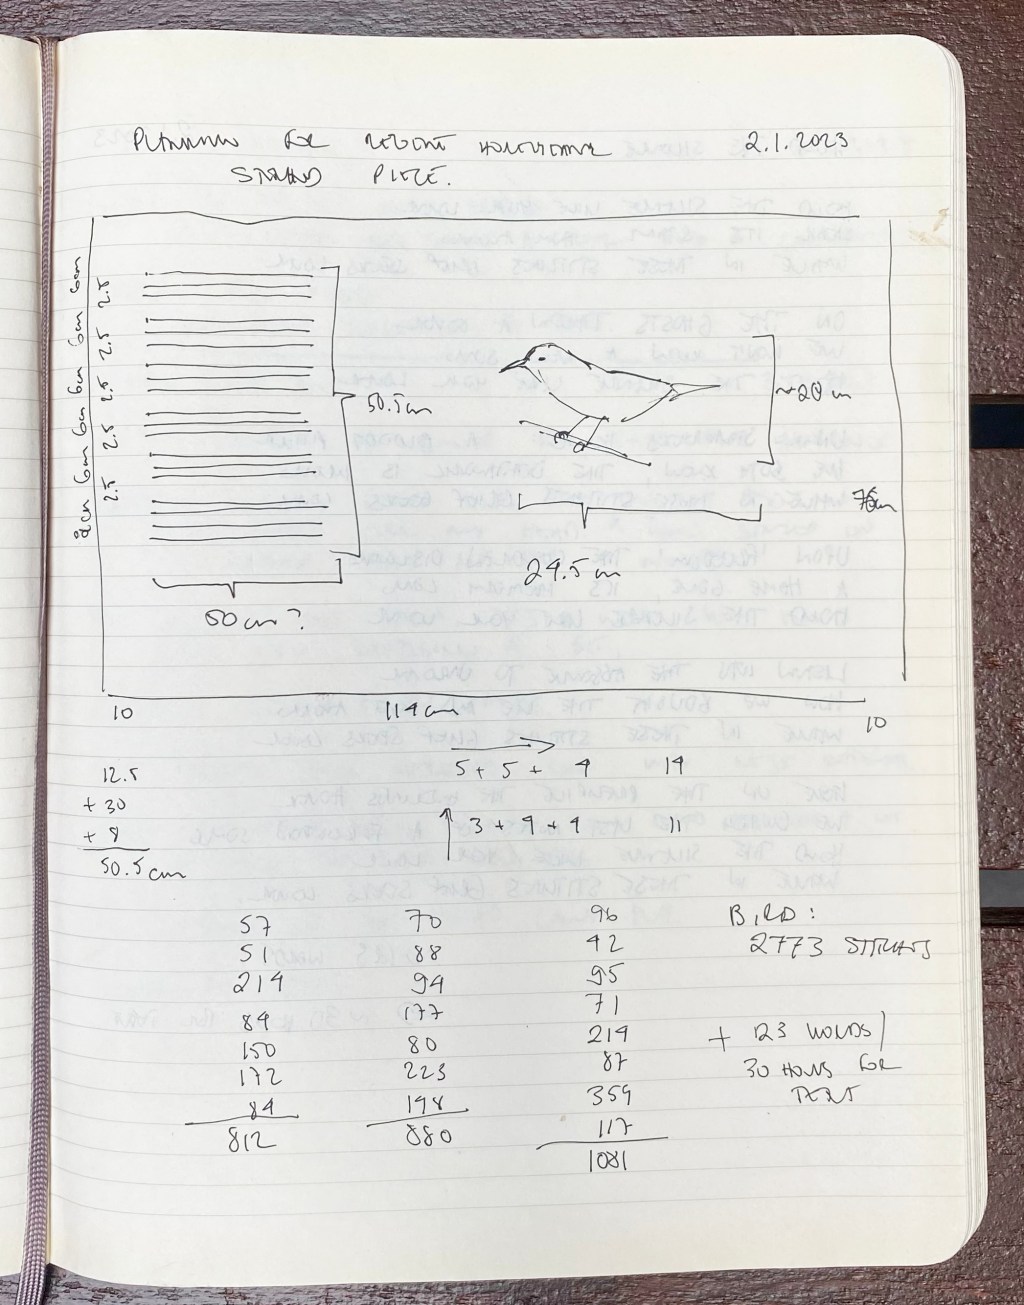 PLANNING FOR REGENT HONEYEATER 2.1.2023
STITCHED PIECE.
6cm 6cm 6cm 6cm 6cm 8cm
2.5 2.5 2.5 2.5 2.5
50.5cm
~20cm
76cm
24.5cm
50cm?
10 114cm 10
5 + 5 + 4 14
3 + 4 + 4 11
12.5
+ 30
+ 8
50.5cm
57 70 96
51 88 42
214 94 95
84 177 71
150 80 214
172 223 87
84 198 359
812 880 117
1081
BIRD:
2773 STITCHES
+ 123 WORDS /
30 HOURS FOR
TEXT